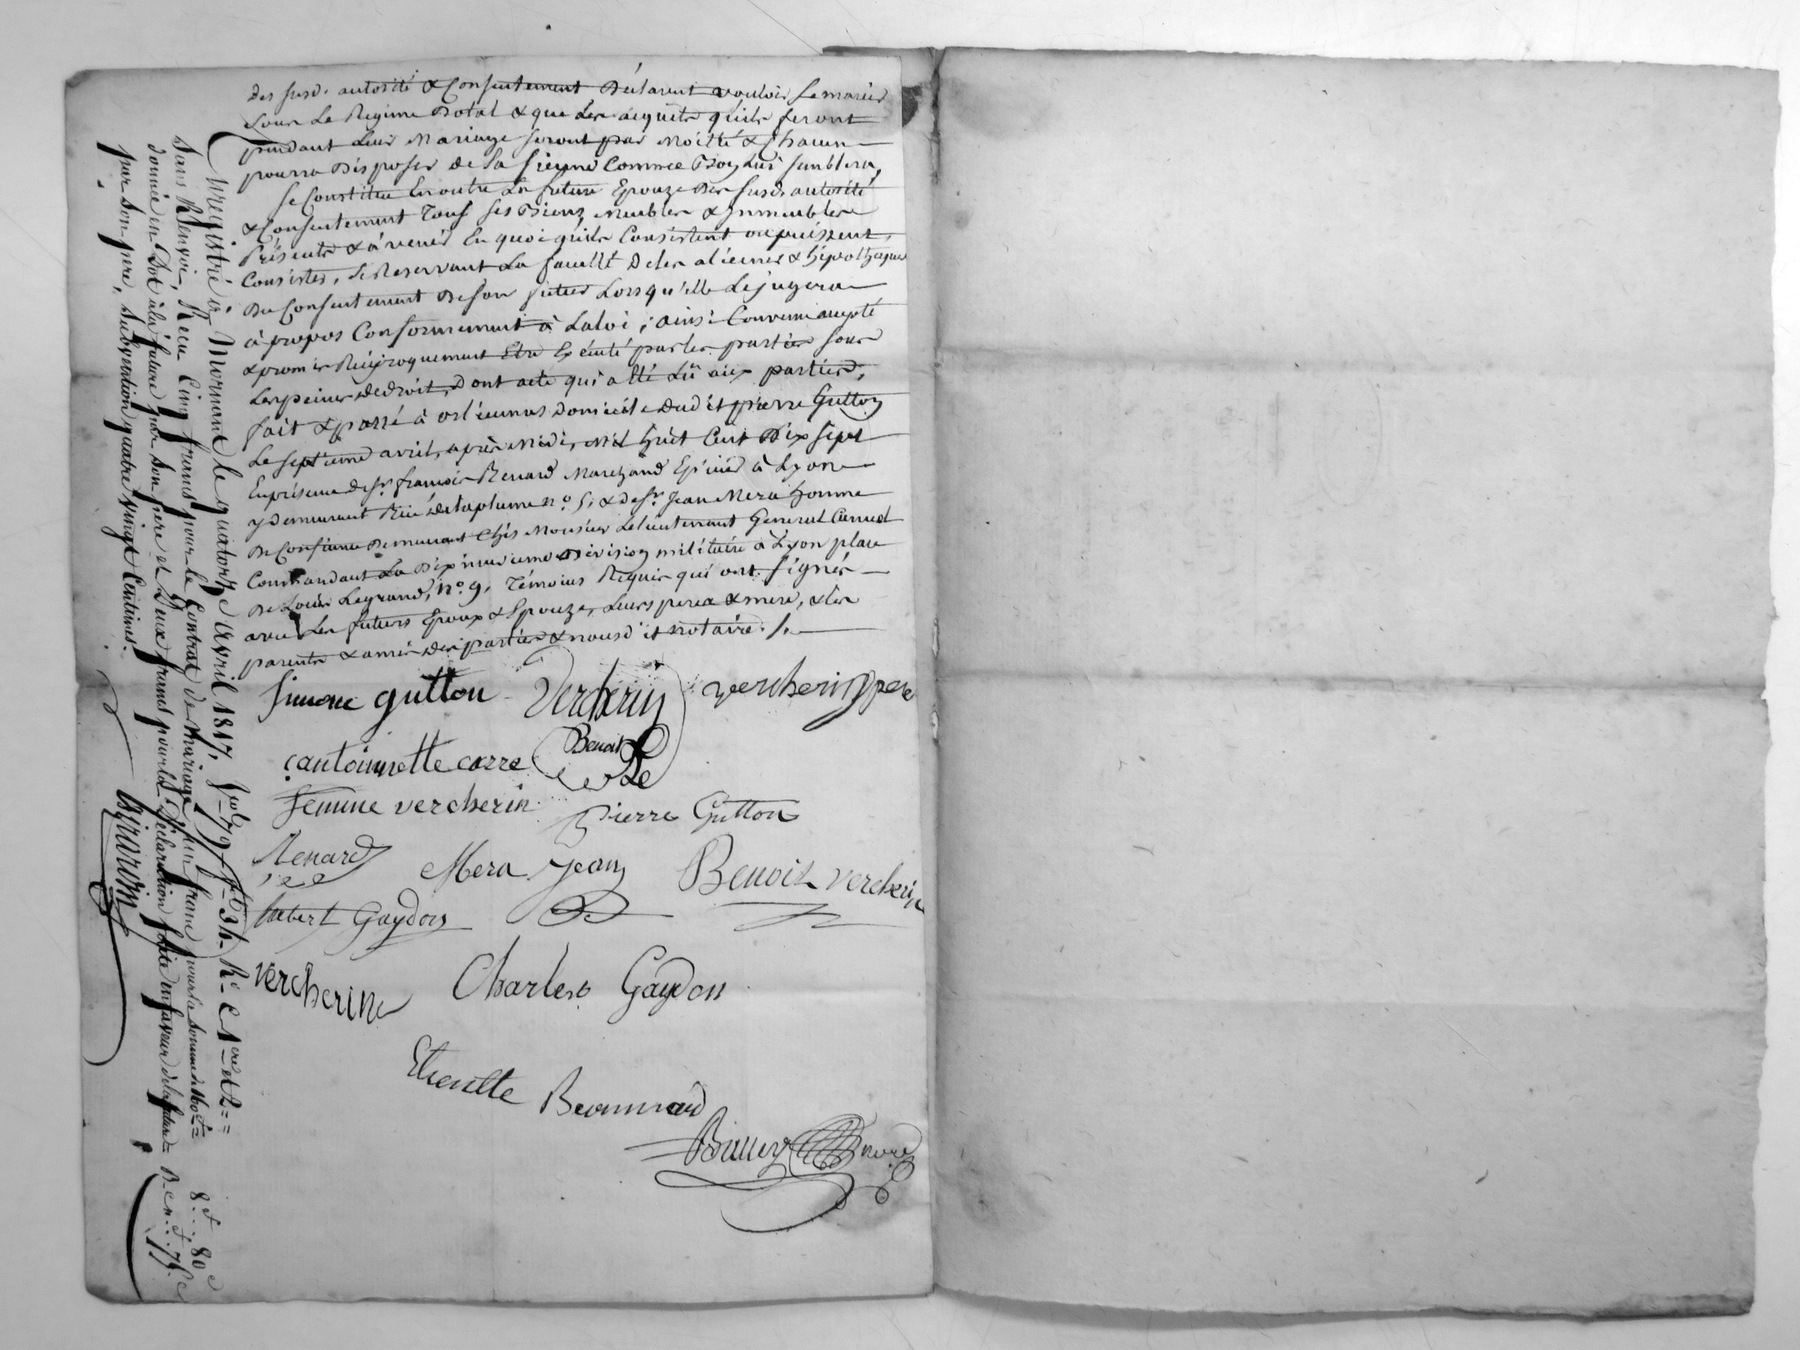 des susd. autorité & Consentement Déclarent vouloir se marier
sous Le Régime Dotal & que Les acquets qu'ils feront
pendant Leur Mariage seront par Moitié & Chacun
pourra Disposer de La sienne Comme Bon Lui semblera,
se Constitue En outre La future Epouze Des susd. autorité
& Consentement Tous ses Biens Meubles & Immeubles
Présents & à venir En quoi qu'ils Consistent ou puissent
Consister, se Reservant La faculté De les aliéner & hipothequer
Du Consentement De son futur Lorsqu'elle Le jugera
à propos Conformement à La loi ; ainsi Convenu accepté
& promis Réciproquement Etre Exécuté par les parties sous
Les peines de droit, Dont acte qui a été Lû aux parties,
fait & passé à orliennas Domicile dudit pierre Gutton
Le septieme avril, après Midi, Mil huit Cent Dix sept
En présence de sr. francois Renard Marchand Epicier à Lyon
y Demeurant Rue de la plume no. 5, & de sr. Jean Mera homme
De Confiance Demeurant Chés Monsieur Le Lieutenant General
Commandant La Dix neuvieme Division militaire à Lyon place
De Louis Legrand, no. 9, Témoins Requis qui ont signés
avec Les futurs Epoux & Epouze, Leurs peres & mere, & les
parents & amis des parties & nous dit notaire ./.
simone gutton Vercherin vercherin pere
antoinette carre Benoit
femme vercherin Pierre Gutton
Renard Mera Jean Benoit vercherin
Gaydon
vercherin Charles Gaydon
Etienette
notre
Enregistré à Mornant le quatorze avril 1817, fol. 79
sans Renvoi, Recu cinq francs pour le Contrat de Mariage, un franc pour la somme de
donnée en Dot à la future par son pere et Deux francs pour la Déclaration faite en faveur de la future
par son pere, subvention quatre vingt Centimes.
8f .. 80c